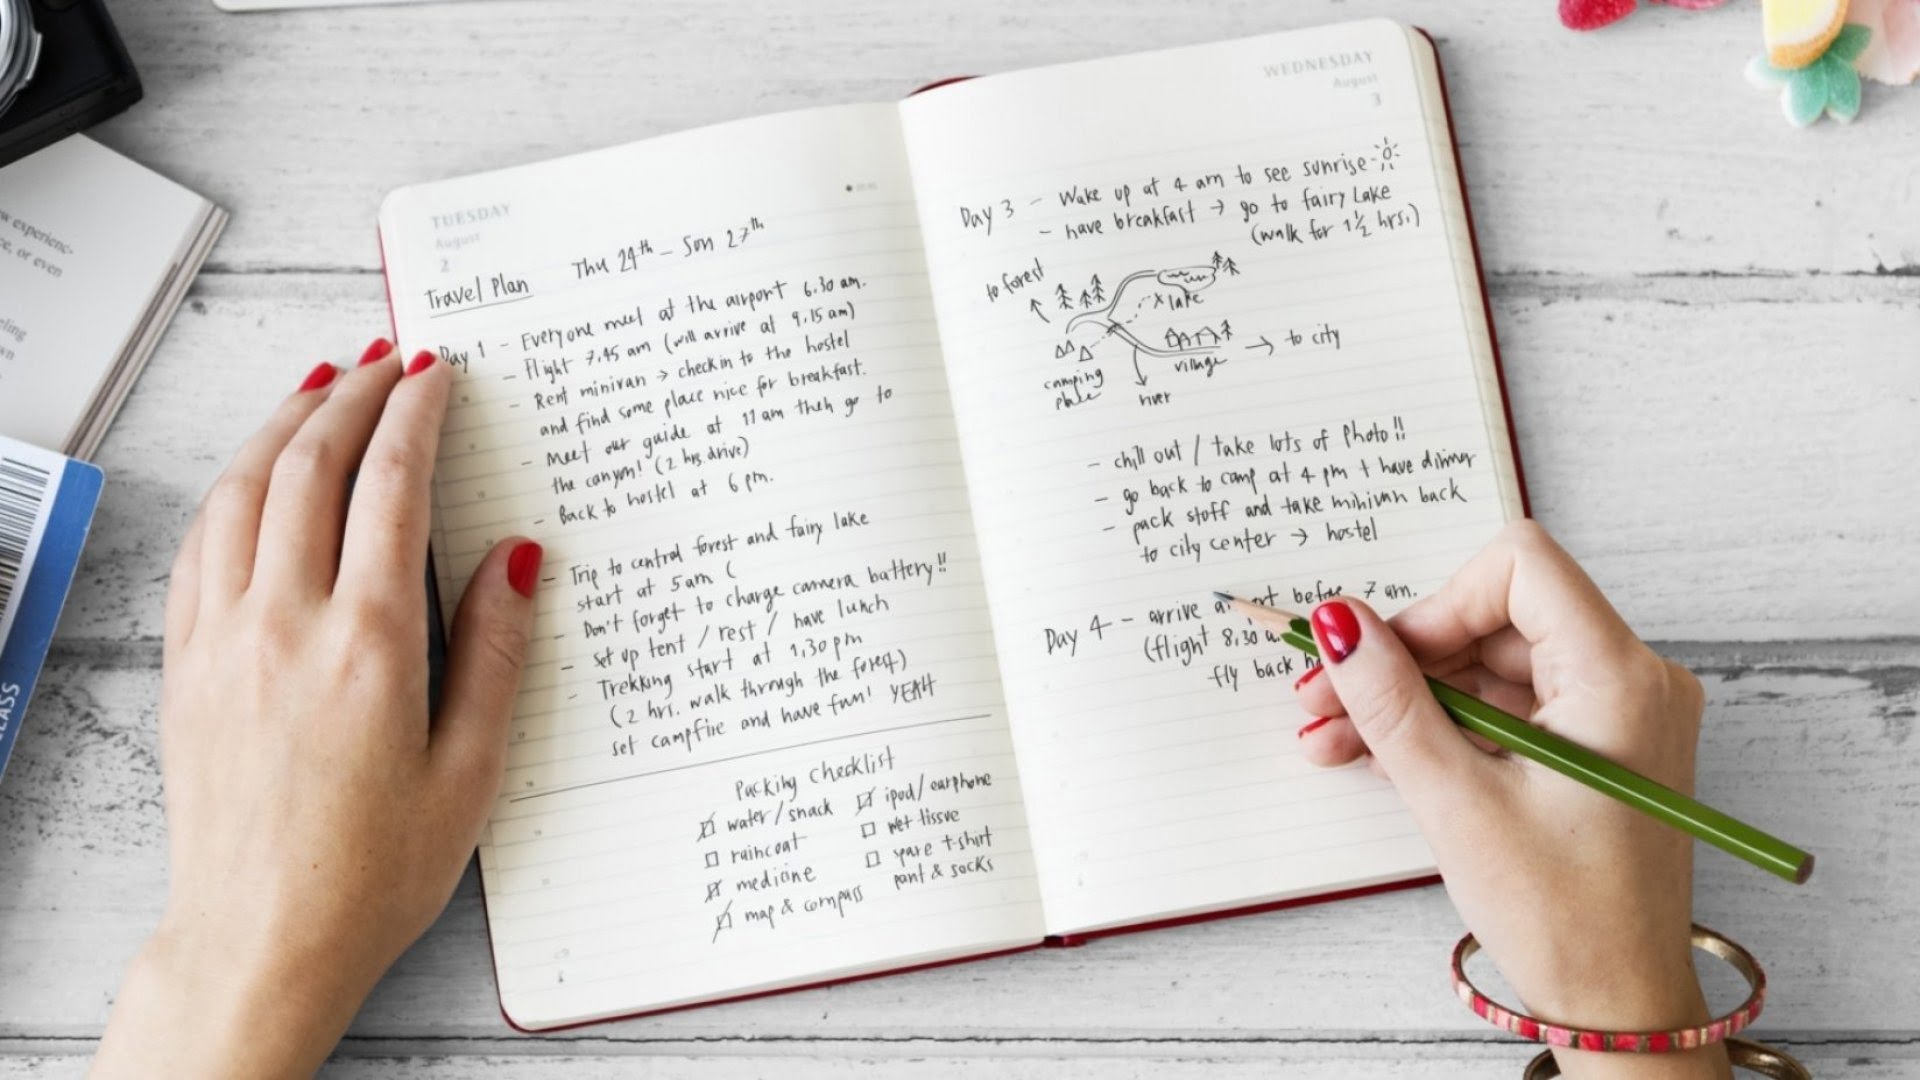 w experienc-
ce, or even
eling
wn
CLASS
TUESDAY
August
2
Travel Plan Thu 24th - Sun 27th
Day 1 - Everyone meet at the airport 6.30 am.
- Flight 7.45 am (will arrive at 9.15 am)
- Rent minivan → check in to the hostel
and find some place nice for breakfast.
- Meet our guide at 11 am then go to
the canyon! (2 hrs. drive)
- Back to hostel at 6 pm.
- Trip to central forest and fairy lake
start at 5am (
- Don't forget to charge camera battery!!
- set up tent / rest / have lunch
- Trekking start at 1.30 pm
(2 hrs. walk through the forest)
set campfire and have fun! YEAH
Packing Checklist
water / snack
raincoat
medicine
map & compass
ipod / earphone
wet tissue
spare t-shirt
pant & socks
WEDNESDAY
August
3
Day 3 - Wake up at 4 am to see sunrise
- have breakfast → go to fairy Lake
(walk for 1 1/2 hrs.)
to forest
x lake
→ to city
village
camping
place
river
- chill out / take lots of photo!!
- go back to camp at 4 pm + have dinner
- pack stuff and take minivan back
to city center → hostel
Day 4 - arrive before 7 am.
(flight 8.30
fly back